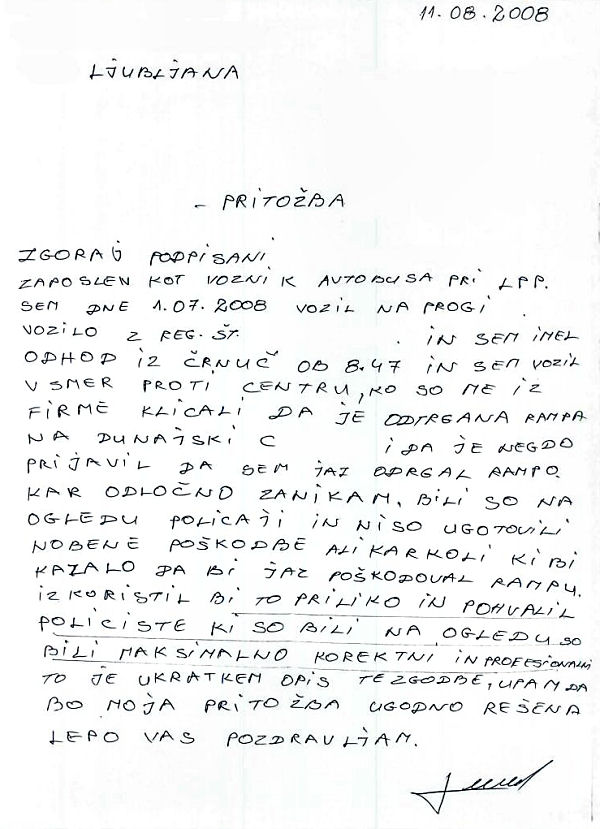 11.08.2008
LJUBLJANA
- PRITOŽBA
ZGORAJ PODPISANI
ZAPOSLEN KOT VOZNIK AVTOBUSA PRI LPP.
SEM DNE 1.07.2008 VOZIL NA PROGI
VOZILO Z REG. ŠT. . IN SEM IMEL
ODHOD IZ ČRNUČ OB 8.47 IN SEM VOZIL
V SMER PROTI CENTRU, KO SO ME IZ
FIRME KLICALI DA JE ODTRGANA RAMPA
NA DUNAJSKI C I DA JE NEGDO
PRIJAVIL DA SEM JAZ ODRGAL RAMPO.
KAR ODLOČNO ZANIKAM. BILI SO NA
OGLEDU POLICAJI IN NISO UGOTOVILI
NOBENE POŠKODBE ALI KARKOLI KI BI
KAZALO DA BI JAZ POŠKODOVAL RAMPU.
IZKORISTIL BI TO PRILIKO IN POHVALIL
POLICISTE KI SO BILI NA OGLEDU SO
BILI MAKSIMALNO KOREKTNI IN
TO JE UKRATKEM OPIS TE ZGODBE, UPAM DA
BO MOJA PRITOŽBA UGODNO REŠENA
LEPO VAS POZDRAVLJAM.